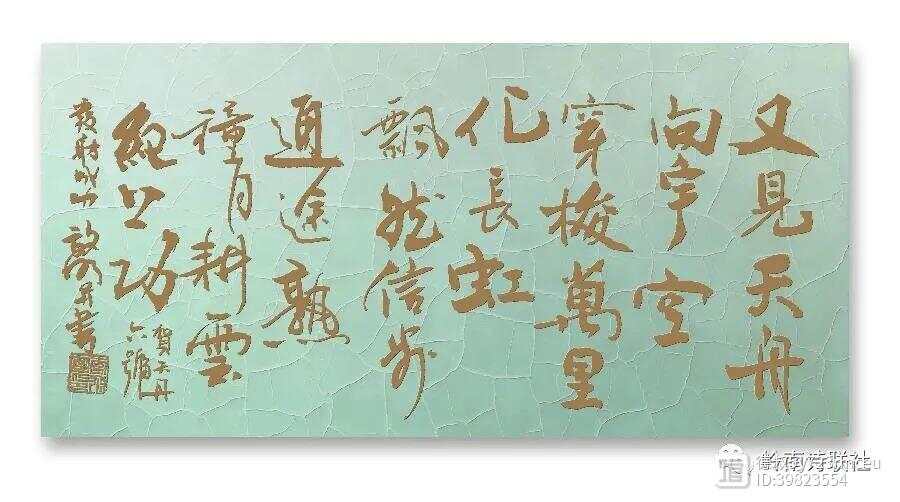 又見天舟
向宇空
穿梭萬里
化長虹
飄然信步
通途熟
種月耕雲
功
賀天舟
六號
書
南诗联社
ID:39823554